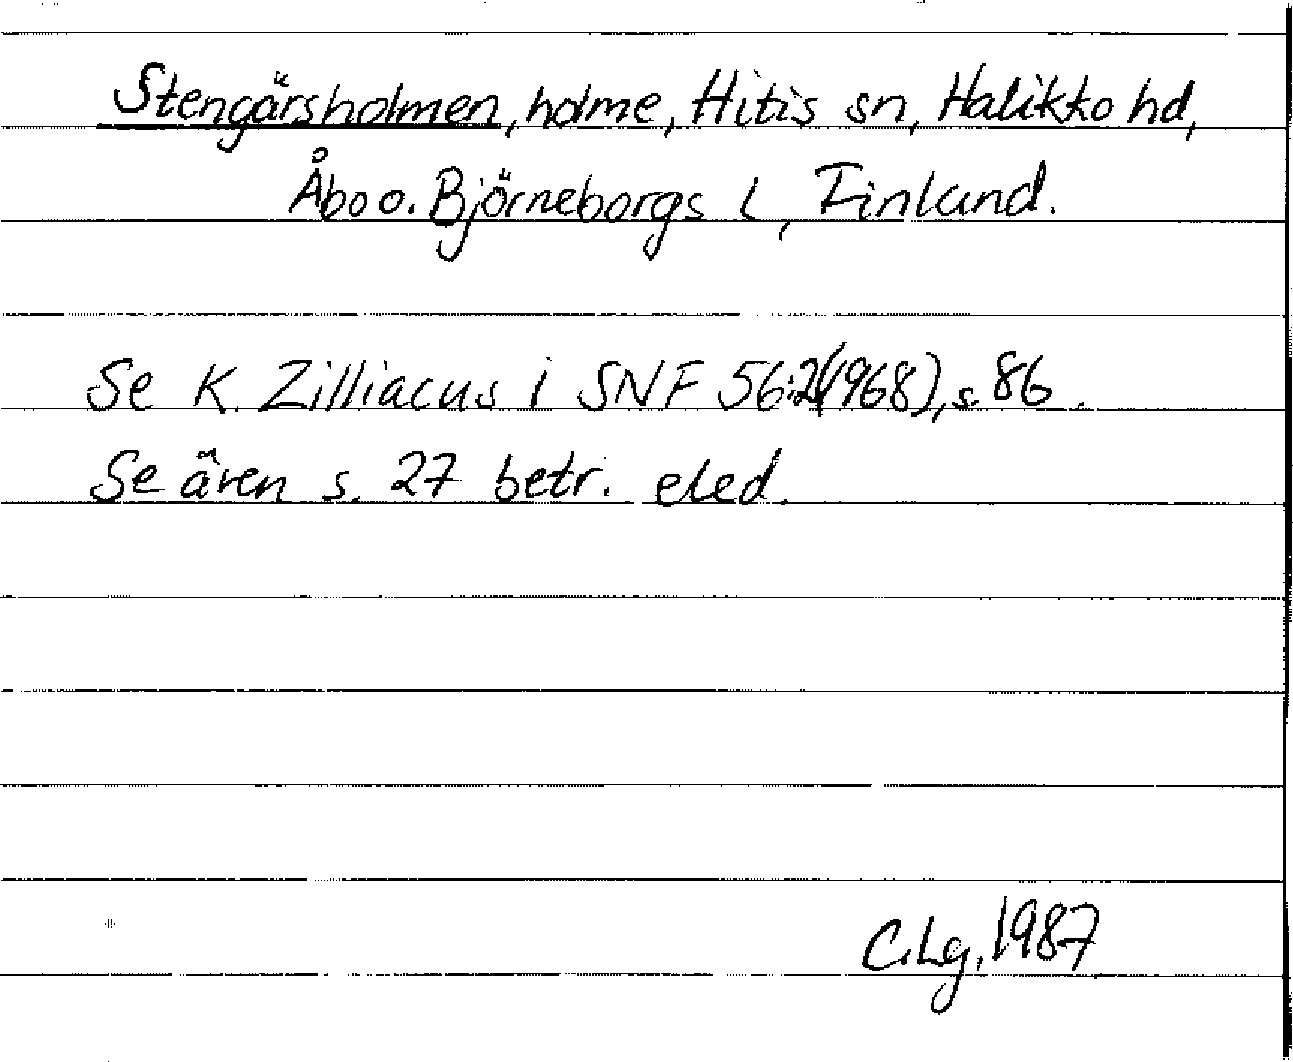 Stengärsholmen, holme, Hitis sn, Halikko hd,
Åbo o. Björneborgs l, Finland.
Se K. Zilliacus i SNF 56:2(1968), s. 86.
Se även s. 27 betr. eled.
C.Lg. 1987